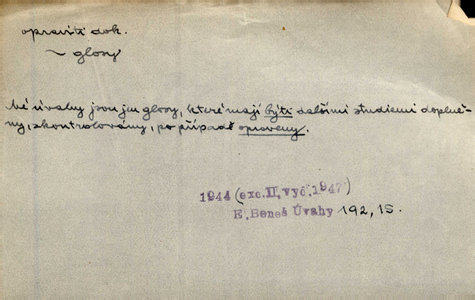 opraviti dok.
~ glosy
Mé úvahy jsou jen glosy, které mají býti dalšími studiemi doplně-
ny, zkontrolovány, po případě opraveny.
1944 (exc. II, vyd. 1947)
E. Beneš Úvahy 192, 15.